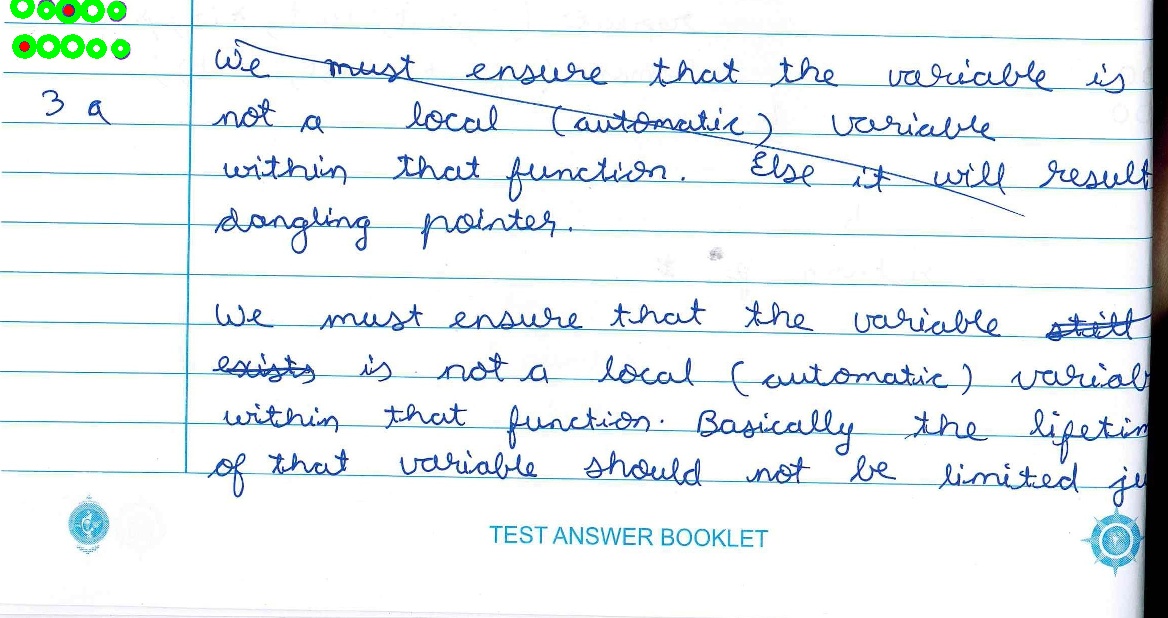 We must ensure that the variable is
3 a
not a local (automatic) variable
within that function. Else it will result
dangling pointer.
We must ensure that the variable still
exists is not a local (automatic) variab
within that function. Basically the lifetim
of that variable should not be limited ju
TEST ANSWER BOOKLET